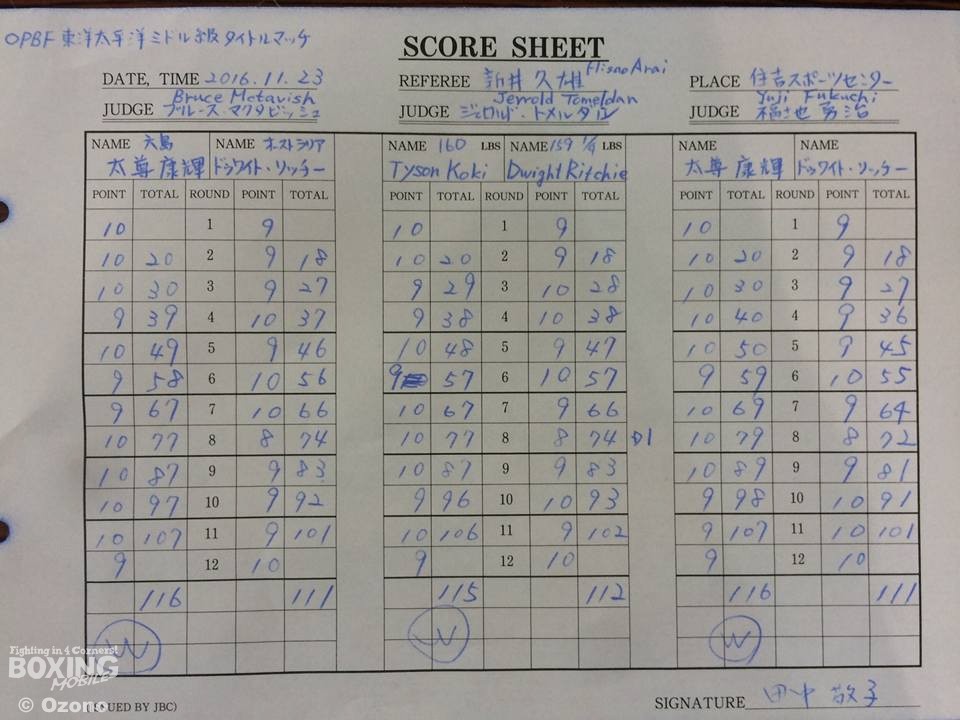 OPBF 東洋太平洋ミドル級タイトルマッチ
SCORE SHEET
DATE, TIME 2016.11.23 REFEREE 新井久雄 Hisao Arai PLACE 住吉スポーツセンター
JUDGE Bruce Mctavish ブルース・マクタビッシュ JUDGE Jerrold Tomeldan ジェロルド・トメルダン JUDGE Yuji Fukuchi 福地勇治
NAME 六島 NAME オーストラリア NAME 160 LBS NAME 159 1/4 LBS NAME NAME
太尊康輝 ドゥワイト・リッチー Tyson Koki Dwight Ritchie 太尊康輝 ドゥワイト・リッチー
POINT TOTAL ROUND POINT TOTAL POINT TOTAL ROUND POINT TOTAL POINT TOTAL ROUND POINT TOTAL
10 1 9 10 1 9 10 1 9
10 20 2 9 18 10 20 2 9 18 10 20 2 9 18
10 30 3 9 27 9 29 3 10 28 10 30 3 9 27
9 39 4 10 37 9 38 4 10 38 10 40 4 9 36
10 49 5 9 46 10 48 5 9 47 10 50 5 9 45
9 58 6 10 56 9 57 6 10 57 9 59 6 10 55
9 67 7 10 66 10 67 7 9 66 10 69 7 9 64
10 77 8 8 74 10 77 8 8 74 D1 10 79 8 8 72
10 87 9 9 83 10 87 9 9 83 10 89 9 9 81
10 97 10 9 92 9 96 10 10 93 9 98 10 10 91
10 107 11 9 101 10 106 11 9 102 9 107 11 10 101
9 12 10 9 12 10 9 12 10
116 111 115 112 116 111
W W W
Fighting in 4 Corners!
BOXING
MOBILE
© Ozono
(ISSUED BY JBC)
SIGNATURE 田中敬子